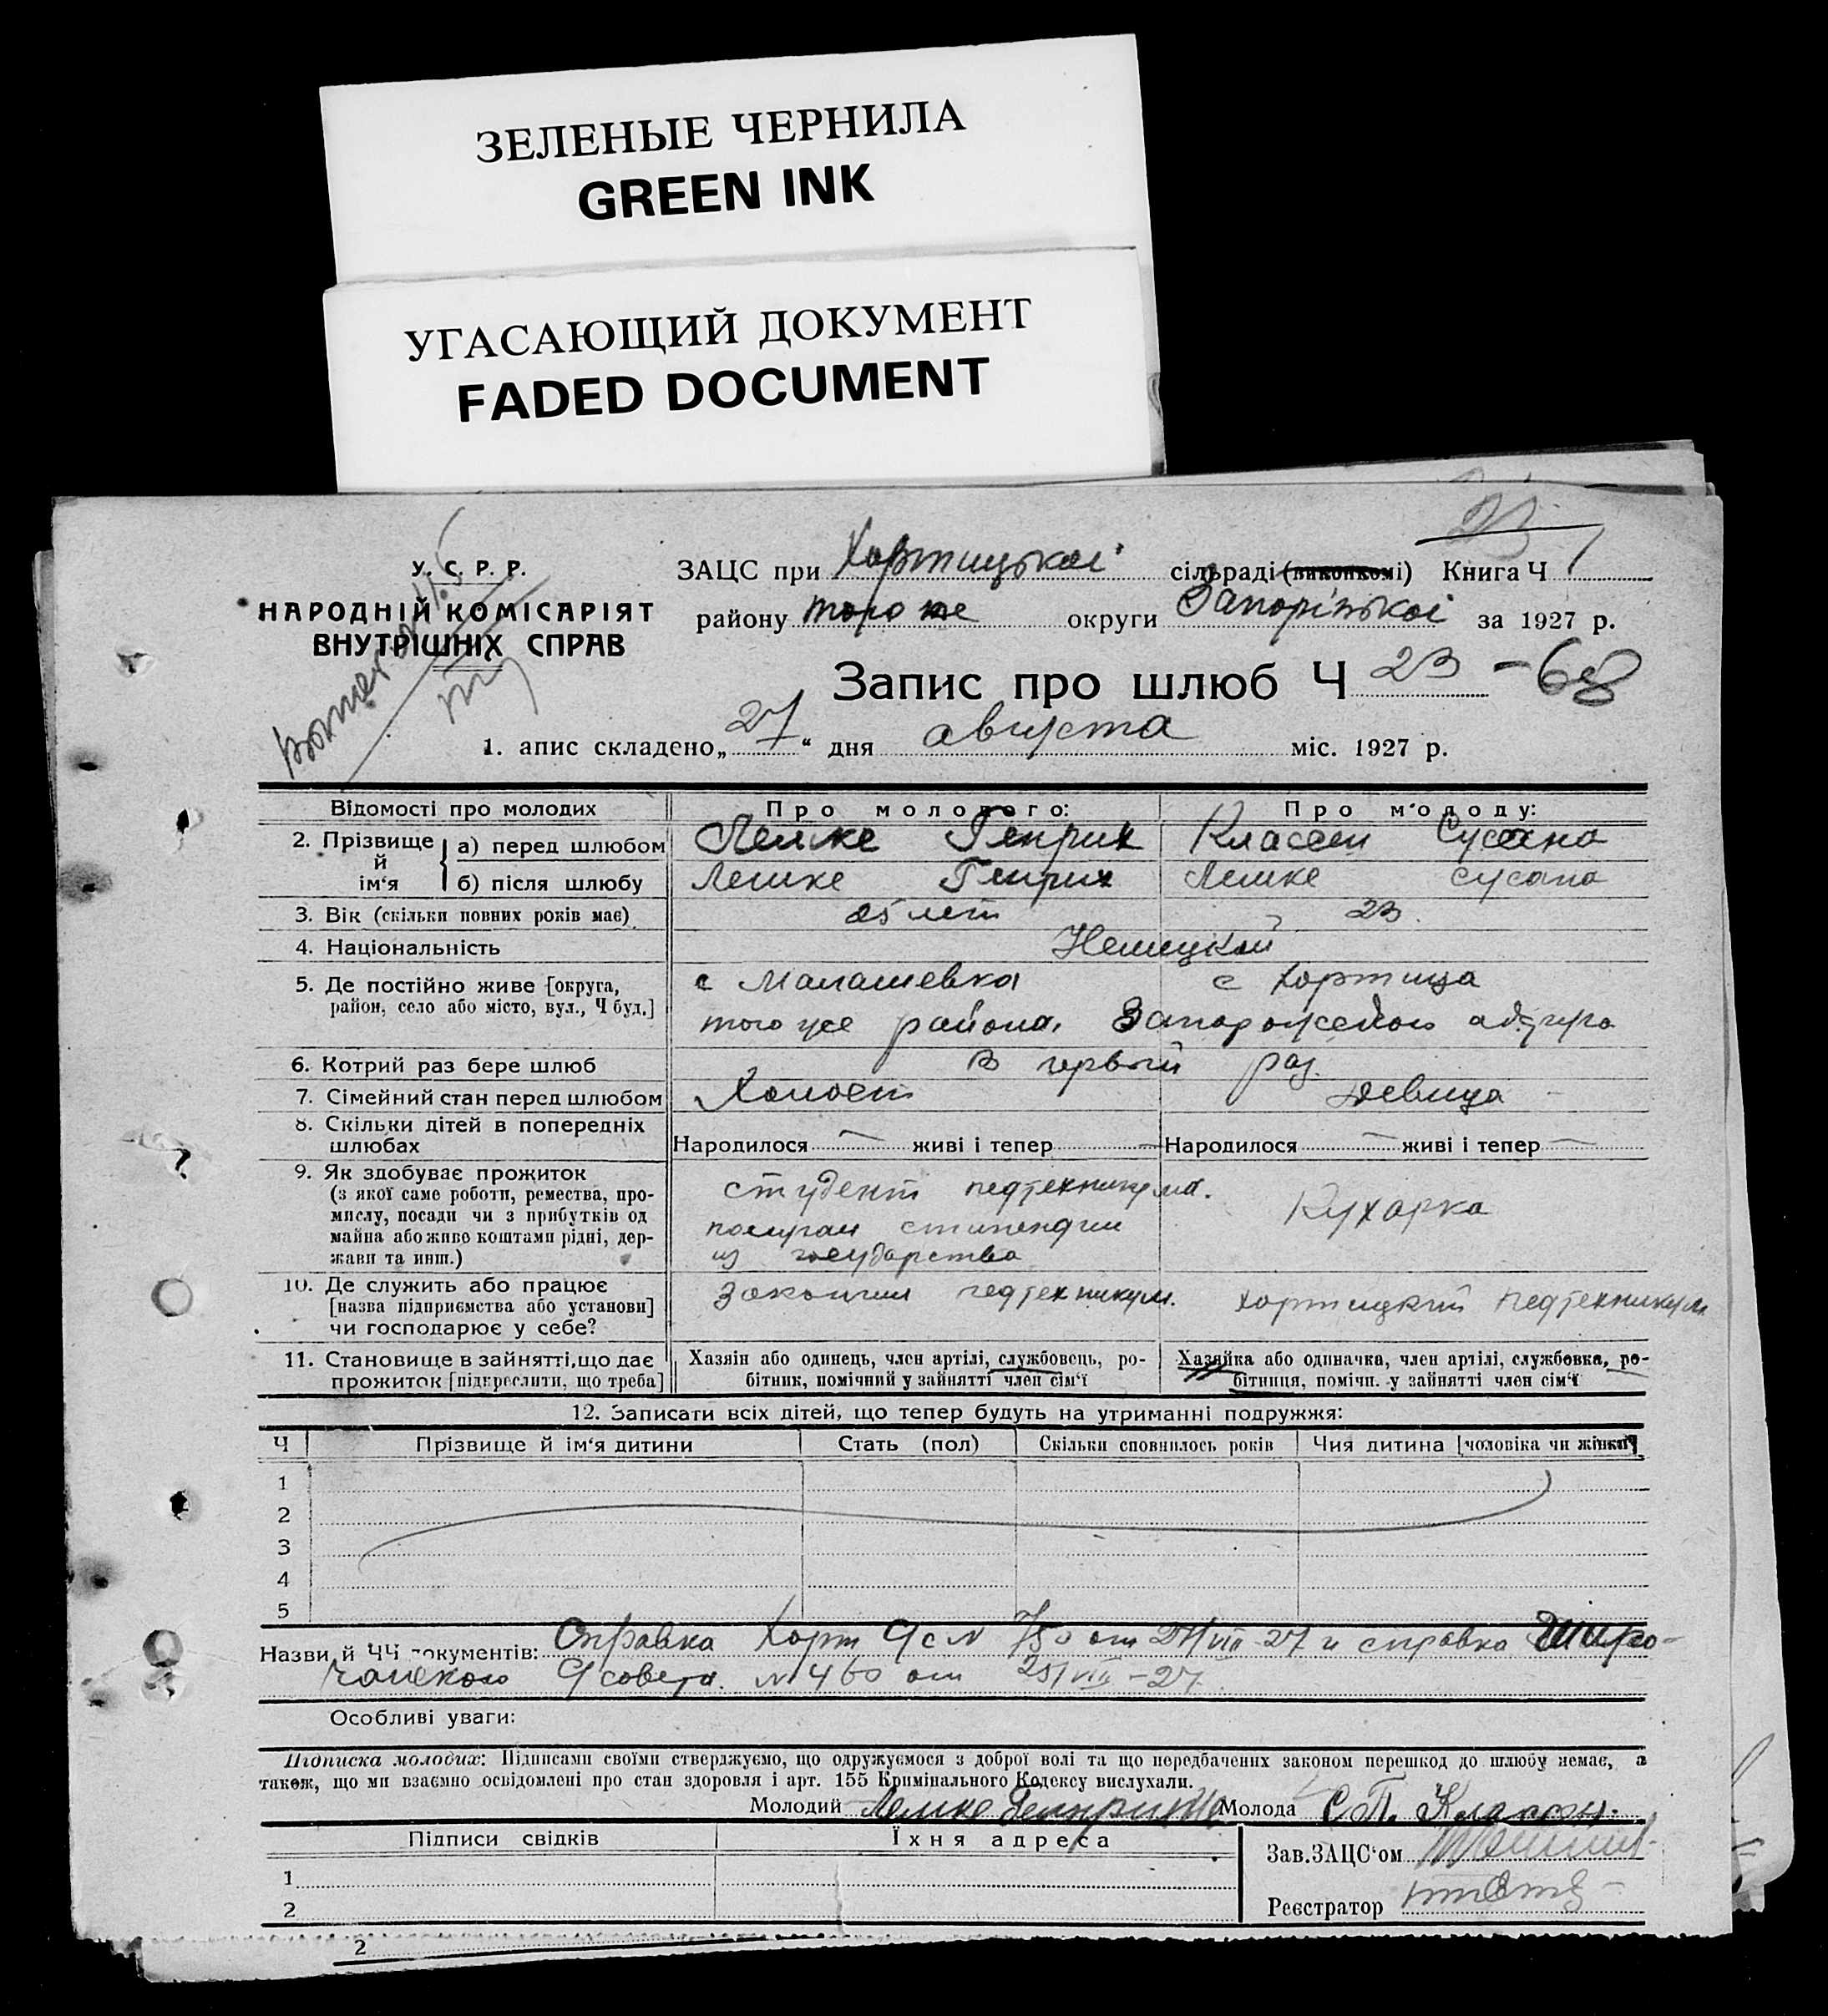 ЗЕЛЕНЫЕ ЧЕРНИЛА
GREEN INK
УГАСАЮЩИЙ ДОКУМЕНТ
FADED DOCUMENT
23
У. С. Р. Р.
НАРОДНІЙ КОМІСАРІЯТ
ВНУТРІШНІХ СПРАВ
ЗАЦС при Хортицької сільраді (виконкомі) Книга Ч 1
району того же округи Запорізької за 1927 р.
Запис про шлюб Ч 23 - 68
1. апис складено „27“ дня августа міс. 1927 р.
Відомості про молодих Про молодого: Про молоду:
2. Прізвище й ім‘я а) перед шлюбом Лемке Генрих Классен Сусана
б) після шлюбу Лемке Генрих Лемке Сусана
3. Вік (скільки повних років має) 25 лет 23.
4. Національність Немецкий
5. Де постійно живе [округа, с Малашевка с Хортица
район, село або місто, вул., Ч буд.] того же района, Запорожского округа
6. Котрий раз бере шлюб В первый раз.
7. Сімейний стан перед шлюбом Холост девица
8. Скільки дітей в попередніх
шлюбах Народилося — живі і тепер — Народилося — живі і тепер —
9. Як здобуває прожиток
(з якої саме роботи, ремества, про- студент педтехникума.
мислу, посади чи з прибутків од Кухарка
майна або живе коштами рідні, дер- получал стипендии
жави та инш.) из государства
10. Де служить або працює закончил педтехникум. Хортицкий педтехникум
[назва підприємства або установи]
чи господарює у себе?
11. Становище в зайнятті, що дає Хазяін або одинець, член артілі, службовець, ро- Хазяйка або одиначка, член артілі, службовка, ро-
прожиток [підкреслити, що треба] бітник, помічний у зайнятті член сім‘ї бітниця, помічн. у зайнятті член сім‘ї
12. Записати всіх дітей, що тепер будуть на утриманні подружжя:
Ч Прізвище й ім‘я дитини Стать (пол) Скільки сповнилось років Чия дитина [чоловіка чи жінки]
1
2
3
4
5
Назви й ЧЧ документів: Справка Хорт с/с N 750 от 24/VIII-27 и справка Широ-
чанского с/совета. N 460 от 25/VIII-27.
Особливі уваги:
Підписка молодих: Підписами своїми стверджуємо, що одружуємося з доброї волі та що передбачених законом перешкод до шлюбу немає, а
також, що ми взаємно освідомлені про стан здоровля і арт. 155 Кримінального Кодексу вислухали.
Молодий Лемке Генрих Молода С.П. Классен.
Підписи свідків Їхня адреса
Зав. ЗАЦС‘ом
1
Реєстратор
2
2